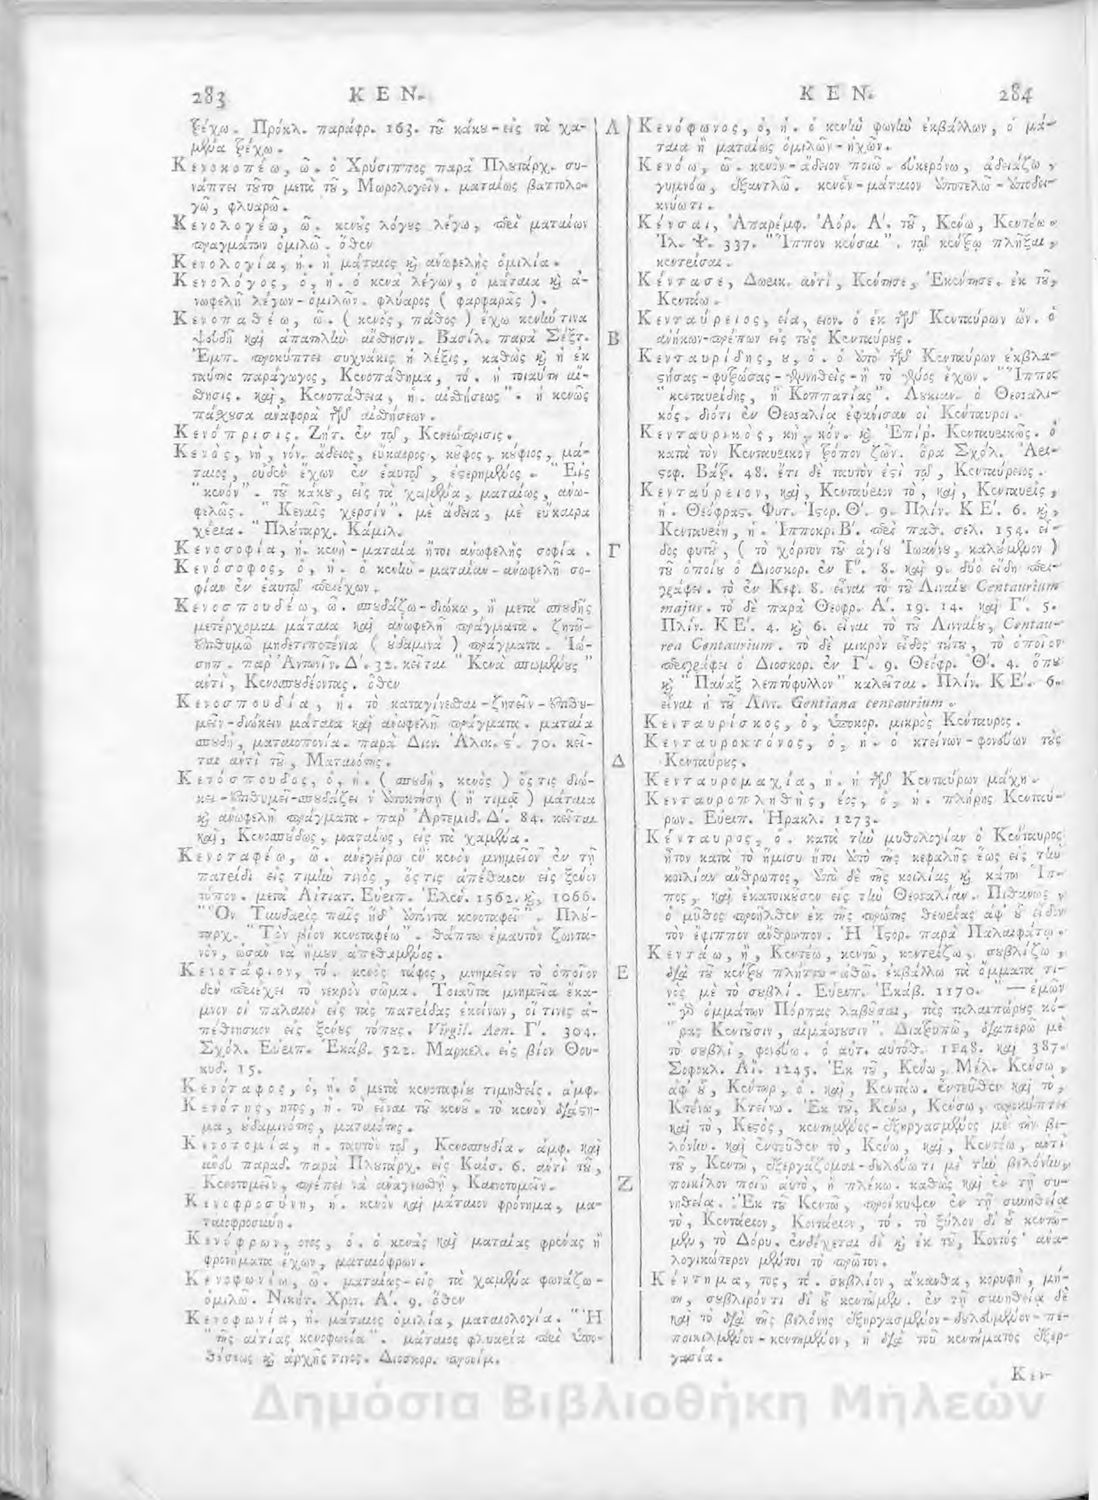 283 ΚΕΝ.
τρέχω. Πρόκλ. παράφρ. 163. τοῦ κάκου - εἰς τὰ χα-
μένα τρέχω.
Κενοκοπέω, ῶ. ὁ Χρύσιππος παρὰ Πλουτάρχ. συ-
νάπτει τοῦτο μετὰ τοῦ, Μωρολογεῖν. ματαίως βαττολο-
γῶ, φλυαρῶ.
Κενολογέω, ῶ. κενοὺς λόγους λέγω, περὶ ματαίων
πραγμάτων ὁμιλῶ. ὅθεν
Κενολογία, ἡ. ἡ μάταιος καὶ ἀνωφελὴς ὁμιλία.
Κενολόγος, ὁ, ἡ. ὁ κενὰ λέγων, ὁ μάταια καὶ ἀ-
νωφελῆ λέγων - ὁμιλῶν. φλύαρος ( φαρφαρᾶς ).
Κενοπαθέω, ῶ. ( κενὸς, πάθος ) ἔχω κενήν τινα
ψευδῆ καὶ ἀπατηλὴν αἴσθησιν. Βασίλ. παρὰ Σέξτ.
Ἐμπ. προκύπτει συχνάκις ἡ λέξις, καθὼς καὶ ἡ ἐκ
ταύτης παράγωγος, Κενοπάθημα, τό. ἡ τοιαύτη αἴ-
σθησις. καὶ, Κενοπάθεια, ἡ. αἰσθήσεως". ἡ κενῶς
πάσχουσα ἀναφορὰ τῶν αἰσθήσεων.
Κενόπρισις. Ζήτ. ἐν τῷ, Κενεώπρισις.
Κενὸς, νὴ, νόν. ἄδειος, εὔκαιρος, κοῦφος, κούφιος, μά-
ταιος, οὐδὲν ἔχων ἐν ἑαυτῷ, ἐστερημένος. " Εἰς
" κενόν". τοῦ κάκου, εἰς τὰ χαμένα, ματαίως, ἀνω-
φελῶς. " Κεναῖς χερσίν". μὲ ἄδεια, μὲ εὔκαιρα
χέρια. " Πλουτάρχ. Κάμιλ.
Κενοσοφία, ἡ. κενὴ - ματαία ἤτοι ἀνωφελὴς σοφία.
Κενόσοφος, ὁ, ἡ. ὁ κενὴν - ματαίαν - ἀνωφελῆ σο-
φίαν ἐν ἑαυτῷ περιέχων.
Κενοσπουδέω, ῶ. σπουδάζω - διώκω, ἢ μετὰ σπουδῆς
μετέρχομαι μάταια καὶ ἀνωφελῆ πράγματα. ζητῶ -
ἐπιθυμῶ μηδετιποτένια ( οὐδαμινὰ ) πράγματα. Ἰώ-
σηπ. παρ' Ἀντωνίν. Δ'. 32. κεῖται " Κενὰ σπωμένους "
αντὶ, Κενοσπουδέοντας. ὅθεν
Κενοσπουδία, ἡ. τὸ καταγίνεσθαι - ζητεῖν - ἐπιθυ-
μεῖν - διώκειν μάταια καὶ ἀνωφελῆ πράγματα. ματαία
σπουδὴ, ματαιοπονία. παρὰ Διον. Ἁλικ. ς'. 70. κεῖ-
ται αντὶ τοῦ, Ματαιότης.
Κενόσπουδος, ὁ, ἡ. ( σπουδὴ, κενὸς ) ὅστις διώ-
κει - ἐπιθυμεῖ - σπουδάζει ν' ἀποκτήσῃ ( ἢ τιμᾷ ) μάταια
καὶ ἀνωφελῆ πράγματα. παρ' Ἀρτεμιδ. Δ'. 84. κεῖται
καὶ, Κενοσπούδως, ματαίως, εἰς τὰ χαμένα.
Κενοταφέω, ῶ. ἀνεγείρω ἐν κενὸν μνημεῖον ἐν τῇ
πατρίδι εἰς τιμὴν τινὸς, ὅστις ἀπέθανεν εἰς ξένον
τόπον. μετὰ Αἰτιατ. Εὐριπ. Ἑλέν. 1562. καὶ, 1066.
" Ὃν Τυνδαρὶς παῖς ἥδ' ἀπόντα κενοταφεῖ". Πλού-
ταρχ. " Τὸν βίον κενοταφέω". θάπτω ἐμαυτὸν ζωντα-
νὸν, ὡσὰν νὰ ἤμουν ἀπεθαμένος.
Κενοτάφιον, τό. κενὸς τάφος, μνημεῖον τὸ ὁποῖον
δὲν περιέχει τὸ νεκρὸν σῶμα. Τοιαῦτα μνημεῖα ἔκα-
μνον οἱ παλαιοὶ εἰς τὰς πατρίδας ἐκείνων, οἵτινες ἀ-
πέθνησκον εἰς ξένους τόπους. Virgil. Aen. Γ'. 304.
Σχόλ. Εὐριπ. Ἑκάβ. 522. Μαρκέλ. εἰς βίον Θου-
κυδ. 15.
Κενόταφος, ὁ, ἡ. ὁ μετὰ κενοταφίου τιμηθείς. ἀμφ.
Κενότης, ητος, ἡ. τὸ εἶναι τοῦ κενοῦ. τὸ κενὸν διάστη-
μα, οὐδαμινότης, ματαιότης.
Κενοτομία, ἡ. ταυτὸν τῷ, Κενοσπουδία. ἀμφ. καὶ
ἄνευ παραδ. παρὰ Πλουτάρχ. εἰς Καίσ. 6. αντὶ τοῦ,
Κενοτομεῖν, πρέπει νὰ ἀναγνωσθῇ, Καινοτομεῖν.
Κενοφροσύνη, ἡ. κενὸν καὶ μάταιον φρόνημα, μα-
ταιοφροσύνη.
Κενόφρων, ονος, ὁ. ὁ κενὰς καὶ ματαίας φρένας ἢ
φρονήματα ἔχων, ματαιόφρων.
Κενοφωνέω, ῶ. ματαίως - εἰς τὰ χαμένα φωνάζω -
ὁμιλῶ. Νικήτ. Χρον. Α'. 9. ὅθεν
Κενοφωνία, ἡ. μάταιος ὁμιλία, ματαιολογία. " Ἡ
" τῆς αἰτίας κενοφωνία". μάταιος φλυαρία περὶ ὑπο-
θέσεως καὶ ἀρχῆς τινος. Διοσκορ. προοίμ.
Α
Β
Γ
Δ
Ε
Ζ
ΚΕΝ. 284
Κενόφωνος, ὁ, ἡ. ὁ κενὴν φωνὴν ἐκβάλλων, ὁ μά-
ταια ἢ ματαίως ὁμιλῶν - ἠχῶν.
Κενόω, ῶ. κενὸν - ἄδειον ποιῶ. εὐκερόνω, ἀδειάζω,
γυμνόω, ἐξαντλῶ. κενὸν - μάταιον ἀποτελῶ - ἀποδει-
κνύω τι.
Κένσαι, Ἀπαρέμφ. Ἀόρ. Α'. τοῦ, Κένω, Κεντέω.
Ἰλ. Ψ. 337. " Ἵππον κένσαι". τῷ κέντρῳ πλῆξαι,
κεντρίσαι.
Κέντασε, Δωρικ. αντὶ, Κέντησε, Ἐκέντησε. ἐκ τοῦ,
Κεντάω.
Κενταύρειος, εία, ειον. ὁ ἐκ τῶν Κενταύρων ὤν. ὁ
ἀνήκων - πρέπων εἰς τοὺς Κενταύρους.
Κενταυρίδης, ου, ὁ. ὁ ἀπὸ τῶν Κενταύρων ἐκβλα-
στήσας - φυτρώσας - γεννηθεὶς - ἢ τὸ γένος ἔχων. " Ἵππος
" κενταυρίδης, ἢ Κοππατίας". Λουκιαν. ὁ Θεσσαλι-
κός. διότι ἐν Θεσσαλίᾳ ἐφάνισαν οἱ Κένταυροι.
Κενταυρικὸς, κὴ, κόν. καὶ Ἐπίρ. Κενταυρικῶς. ὁ
κατὰ τὸν Κενταυρικὸν τρόπον ζῶν. ὅρα Σχόλ. Ἀρι-
στοφ. Βάτρ. 48. ἔτι δὲ ταυτὸν ἐστὶ τῷ, Κενταύρειος.
Κενταύρειον, καὶ, Κενταύριον τὸ, καὶ, Κενταυρὶς,
ἡ. Θεόφραστ. Φυτ. Ἱστορ. Θ'. 9. Πλίν. ΚΕ'. 6. καὶ,
Κενταυρίη, ἡ. Ἱπποκρ. Β'. περὶ παθ. σελ. 154. εἶ-
δος φυτοῦ, ( τὸ χόρτον τοῦ ἁγίου Ἰωάννου, καλούμενον )
τοῦ ὁποίου ὁ Διοσκορ. ἐν Γ'. 8. καὶ 9. δύο εἴδη περι-
γράφει. τὸ ἐν Κεφ. 8. εἶναι τὸ τοῦ Λιναίου Centaurium
majur. τὸ δὲ παρὰ Θεοφρ. Α'. 19. 14. καὶ Γ'. 5.
Πλίν. ΚΕ'. 4. καὶ 6. εἶναι τὸ τοῦ Λινναίου, Centau-
rea Centaurium. τὸ δὲ μικρὸν εἶδος τούτου, τὸ ὁποῖον
περιγράφει ὁ Διοσκορ. ἐν Γ'. 9. Θεόφρ. Θ'. 4. ὅπου
καὶ " Πάναξ λεπτόφυλλον" καλεῖται. Πλίν. ΚΕ'. 6.
εἶναι ἡ τοῦ Λινν. Gentiana centaurium.
Κενταυρίσκος, ὁ, ὑποκορ. μικρὸς Κένταυρος.
Κενταυροκτόνος, ὁ, ἡ. ὁ κτείνων - φονεύων τοὺς
Κενταύρους.
Κενταυρομαχία, ἡ. ἡ τῶν Κενταύρων μάχη.
Κενταυροπληθὴς, έος, ὁ, ἡ. πλήρης Κενταύ-
ρων. Εὐριπ. Ἡρακλ. 1273.
Κένταυρος, ὁ. κατὰ τὴν μυθολογίαν ὁ Κένταυρος
ἦτον κατὰ τὸ ἥμισυ ἤτοι ἀπὸ τῆς κεφαλῆς ἕως εἰς τὴν
κοιλίαν ἄνθρωπος, ἀπὸ δὲ τῆς κοιλίας καὶ κάτω Ἵπ-
πος, καὶ ἐκατοικοῦσεν εἰς τὴν Θεσσαλίαν. Πιθανῶς
ὁ μῦθος προῆλθεν ἐκ τῆς πρώτης θεωρίας ἀφ' οὗ εἶδον
τὸν ἔφιππον ἄνθρωπον. Ἡ Ἱστορ. παρὰ Παλαιφάτῳ.
Κεντάω, ῶ, Κεντέω, κεντῶ, κεντρίζω, σουβλίζω,
διὰ τοῦ κέντρου πλήττω - ὠθῶ. ἐκβάλλω τὰ ὄμματα τι-
νὸς μὲ τὸ σουβλί. Εὐριπ. Ἑκάβ. 1170. " — ἐμῶν
" γὰρ ὀμμάτων Πόρπας λαβοῦσαι, τὰς ταλαιπώρους κό-
" ρας Κεντοῦσιν, αἱμάσσουσιν". Διατρυπῶ, διαπερῶ μὲ
τὸ σουβλὶ, φονεύω. ὁ αὐτ. αὐτόθ. 1148. καὶ 387.
Σοφοκλ. Αἴ. 1245. Ἐκ τοῦ, Κένω, Μέλ. Κένσω,
ἀφ' οὗ, Κέντωρ, ὁ. καὶ, Κεντάω. ἐντεῦθεν καὶ τὸ,
Κτένω, Κτείνω. Ἐκ τοῦ, Κένω, Κένσω, προκύπτει
καὶ τὸ, Κεστὸς, κεντημένος - ἐξηργασμένος μὲ τὴν βε-
λόνην. καὶ ἐντεῦθεν τὸ, Κένω, καὶ, Κεντέω, αντὶ
τοῦ, Κεντῶ, ἐξεργάζομαι - δουλεύω τι μὲ τὴν βελόνην,
ποικίλον ποιῶ αὐτὸ, ἢ πλέκω. καθὼς καὶ ἐν τῇ συ-
νηθείᾳ. Ἐκ τοῦ Κεντῶ, προέκυψεν ἐν τῇ συνηθείᾳ
τὸ, Κεντάριον, Κοντάριον, τό. τὸ ξύλον δι' οὗ κεντῶ-
μεν, τὸ Δόρυ. ἐνδέχεται δὲ καὶ ἐκ τοῦ, Κοντὸς' ἀνα-
λογικώτερον μέντοι τὸ πρῶτον.
Κέντημα, τος, τό. σουβλίον, ἄκανθα, κορυφὴ, μύ-
τη, σουβλερόν τι δι' οὗ κεντῶμεν. ἐν τῇ συνηθείᾳ δὲ
καὶ τὸ διὰ τῆς βελόνης ἐξηργασμένον - δουλευμένον - πε-
ποικιλμένον - κεντημένον, ἢ διὰ τοῦ κεντήματος ἐξερ-
γασία.
Κεν-
Δημόσια Βιβλιοθήκη Μηλεών